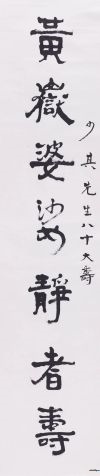 少其先生八十大壽
黃嶽婆娑靜者壽